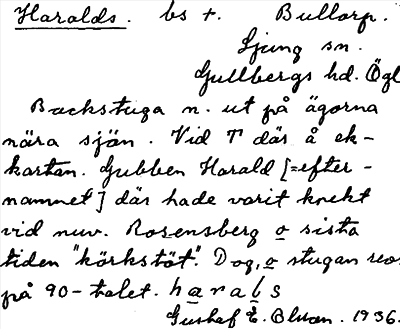 Haralds. bs +. Bullorp.
Ljung sn.
Gullbergs hd. Ögl
Backstuga n. ut på ägorna
nära sjön. Vid T där å ek-
kartan. Gubben Harald [=efter-
namnet] där hade varit knekt
vid nuv. Rosensberg o sista
tiden "körkstöt". Dog, o stugan revs
på 90-talet. harals
Gustaf E. 1936.